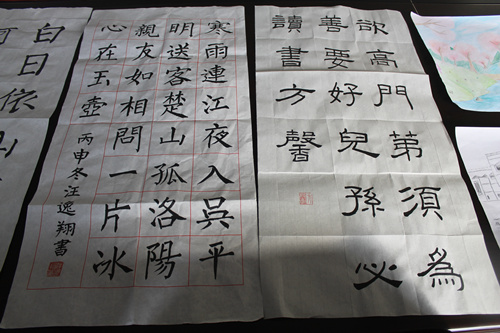 欲高門第須為
善要好兒孫必
讀書方馨
寒雨連江夜入吳平
明送客楚山孤洛陽
親友如相問一片冰
心在玉壺
丙申冬汪逸翔書
白日依